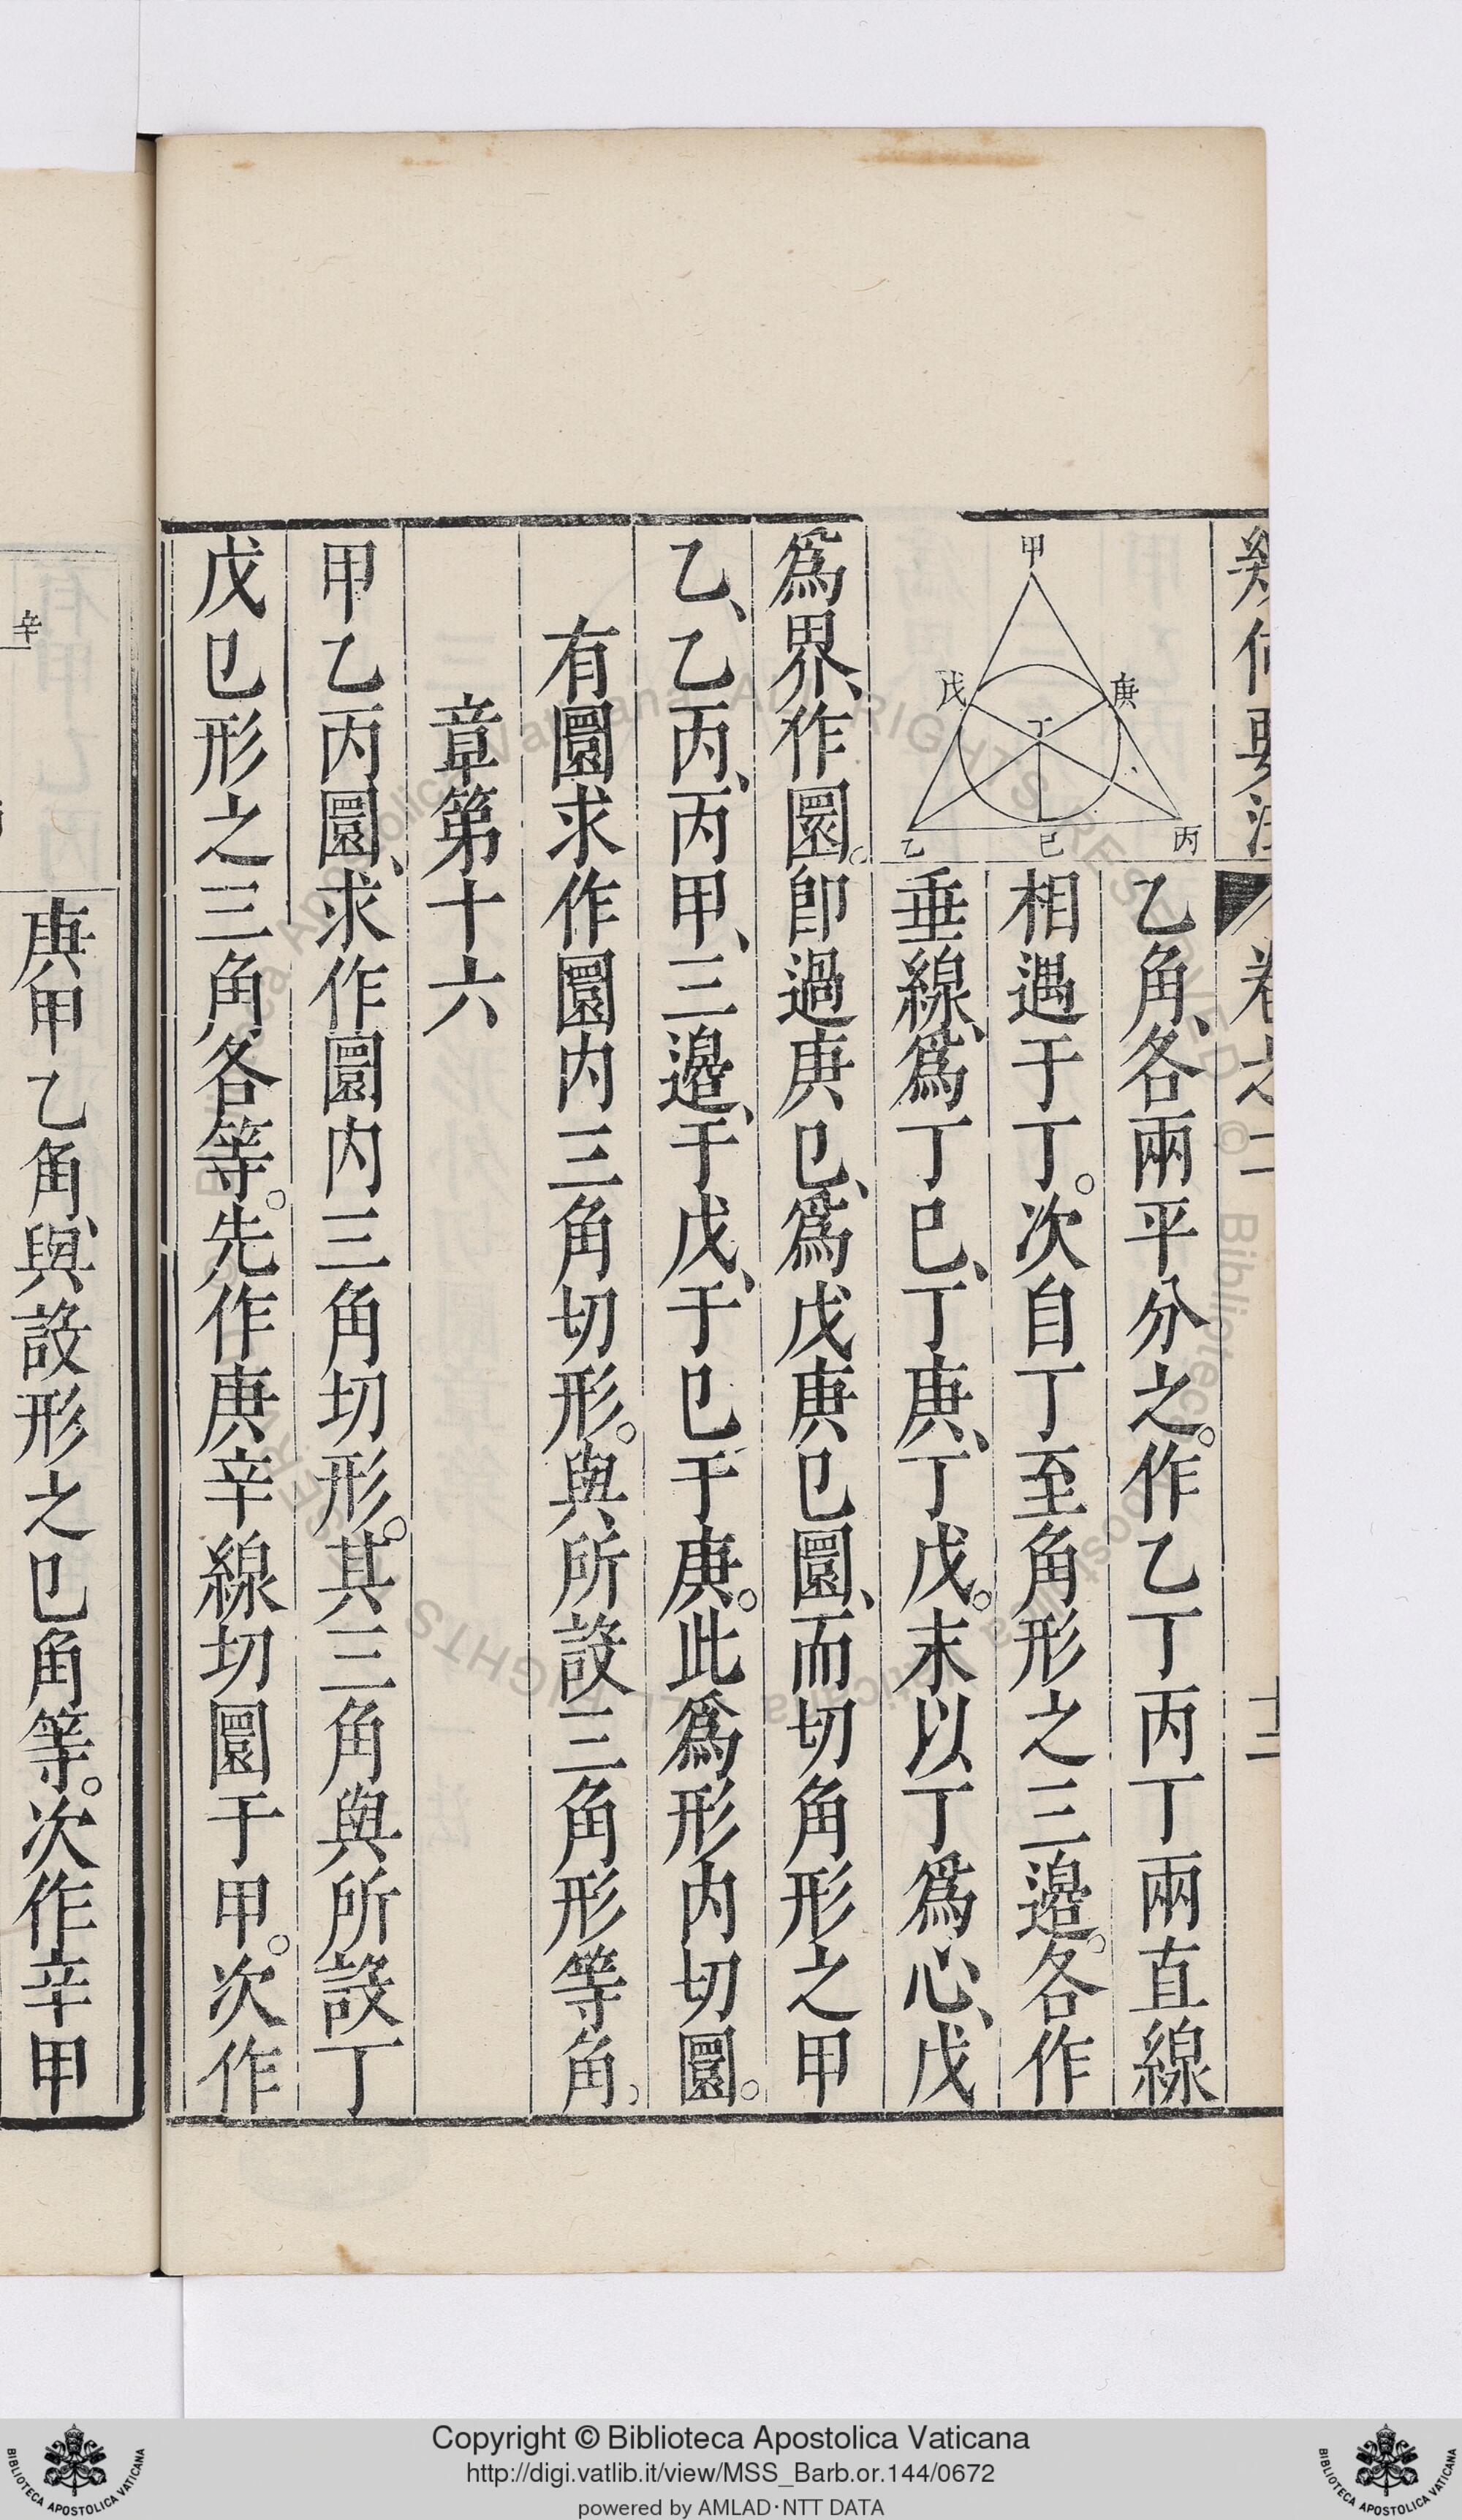 幾何要法 卷之二 十二
甲
庚
戊
丁
丙
己
乙
乙角、各兩平分之。作乙丁丙丁兩直線
相遇于丁。次自丁至角形之三邊。各作
垂線、爲丁巳、丁庚、丁戊。末以丁爲心、戊
爲界、作圜。卽過庚巳、爲戊庚巳圜、而切角形之甲
乙、乙丙、丙甲、三邊、于戊、于巳于庚。此爲形內切圜。
有圜求作圜內三角切形。與所設三角形等角、
章第十六
甲乙丙圜、求作圜內三角切形。其三角與所設丁
戊巳形之三角各等。先作庚辛線切圜于甲。次作
辛
庚甲乙角、與設形之巳角等。次作辛甲
Copyright © Biblioteca Apostolica Vaticana
http://digi.vatlib.it/view/MSS_Barb.or.144/0672
powered by AMLAD·NTT DATA
BIBLIOTECA APOSTOLICA VATICANA
BIBLIOTECA APOSTOLICA VATICANA